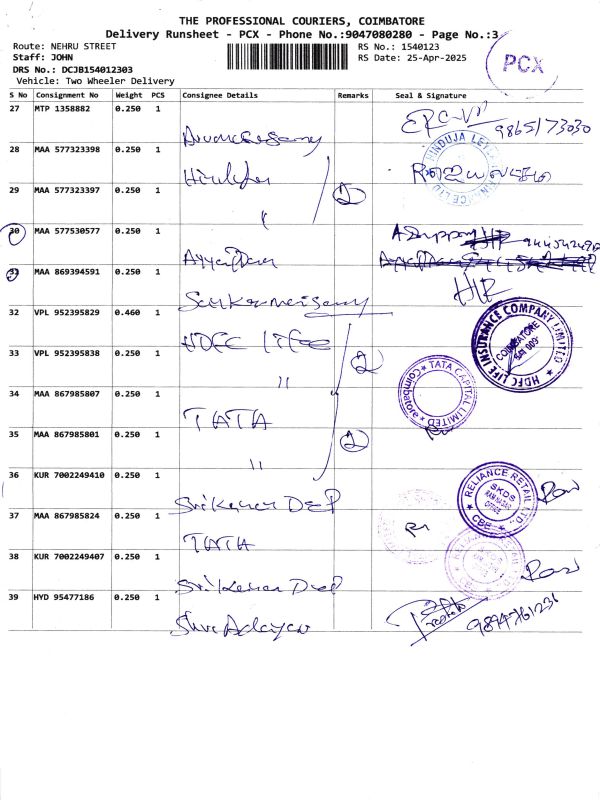 THE PROFESSIONAL COURIERS, COIMBATORE
Delivery Runsheet - PCX - Phone No.:9047080280 - Page No.:3
Route: NEHRU STREET
Staff: JOHN
DRS No.: DCJB154012303
Vehicle: Two Wheeler Delivery
RS No.: 1540123
RS Date: 25-Apr-2025
PCX
S No Consignment No Weight PCS Consignee Details Remarks Seal & Signature
27 MTP 1358882 0.250 1
9865173030
28 MAA 577323398 0.250 1
29 MAA 577323397 0.250 1
2
30 MAA 577530577 0.250 1
31 MAA 869394591 0.250 1
32 VPL 952395829 0.460 1 HDFC Life
HDFC LIFE INSURANCE COMPANY LIMITED
COIMBATORE
33 VPL 952395838 0.250 1 "
2
34 MAA 867985807 0.250 1 TATA
TATA CAPITAL LIMITED
Coimbatore
35 MAA 867985801 0.250 1 "
2
36 KUR 7002249410 0.250 1
RELIANCE RETAIL LTD.,
SKDS
CBE
37 MAA 867985824 0.250 1 TATA
38 KUR 7002249407 0.250 1
39 HYD 95477186 0.250 1
9894761231